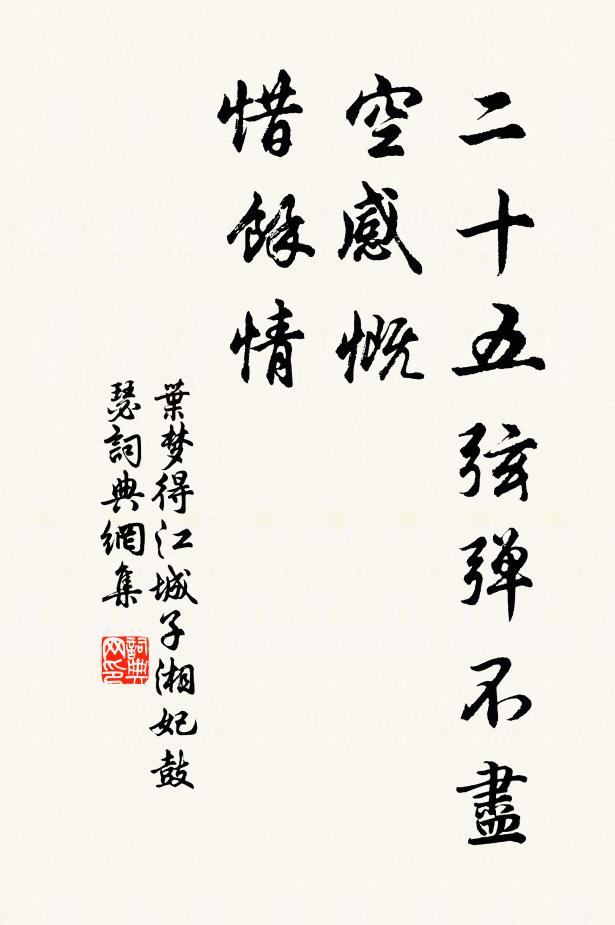 二十五弦弹不盡
空感慨
惜餘情
葉梦得江城子湘妃鼓
瑟詞典網集
詞典
网印